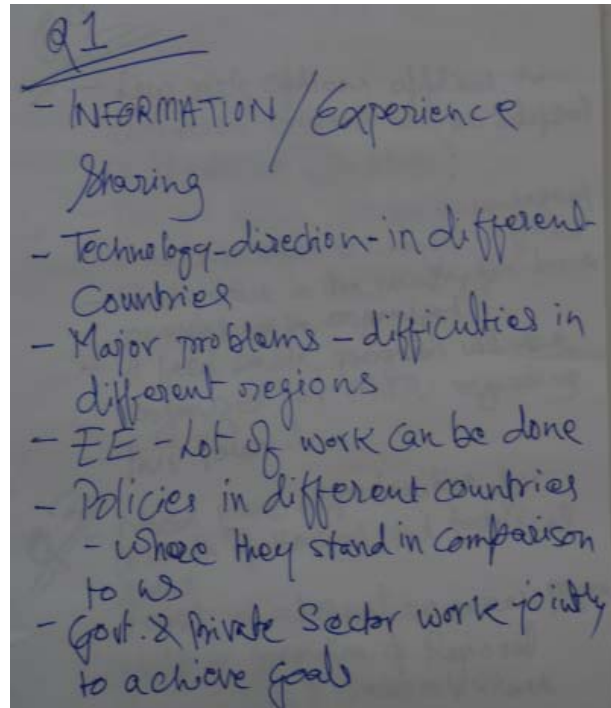 Q1
- INFORMATION / Experience
Sharing
- Technology-direction-in different
Countries
- Major problems - difficulties in
different regions
- EE - Lot of work can be done
- Policies in different countries
- where they stand in comparison
to us
- Govt. & Private Sector work jointly
to achieve goals